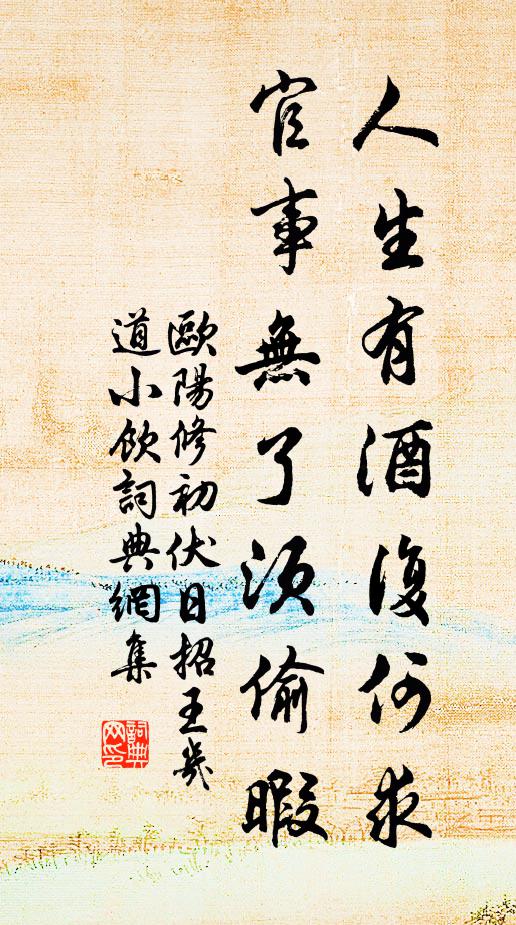 人生有酒復何求
官事無了須偷暇
歐陽修初伏日招王幾
道小飲詞典網集
詞典
网印